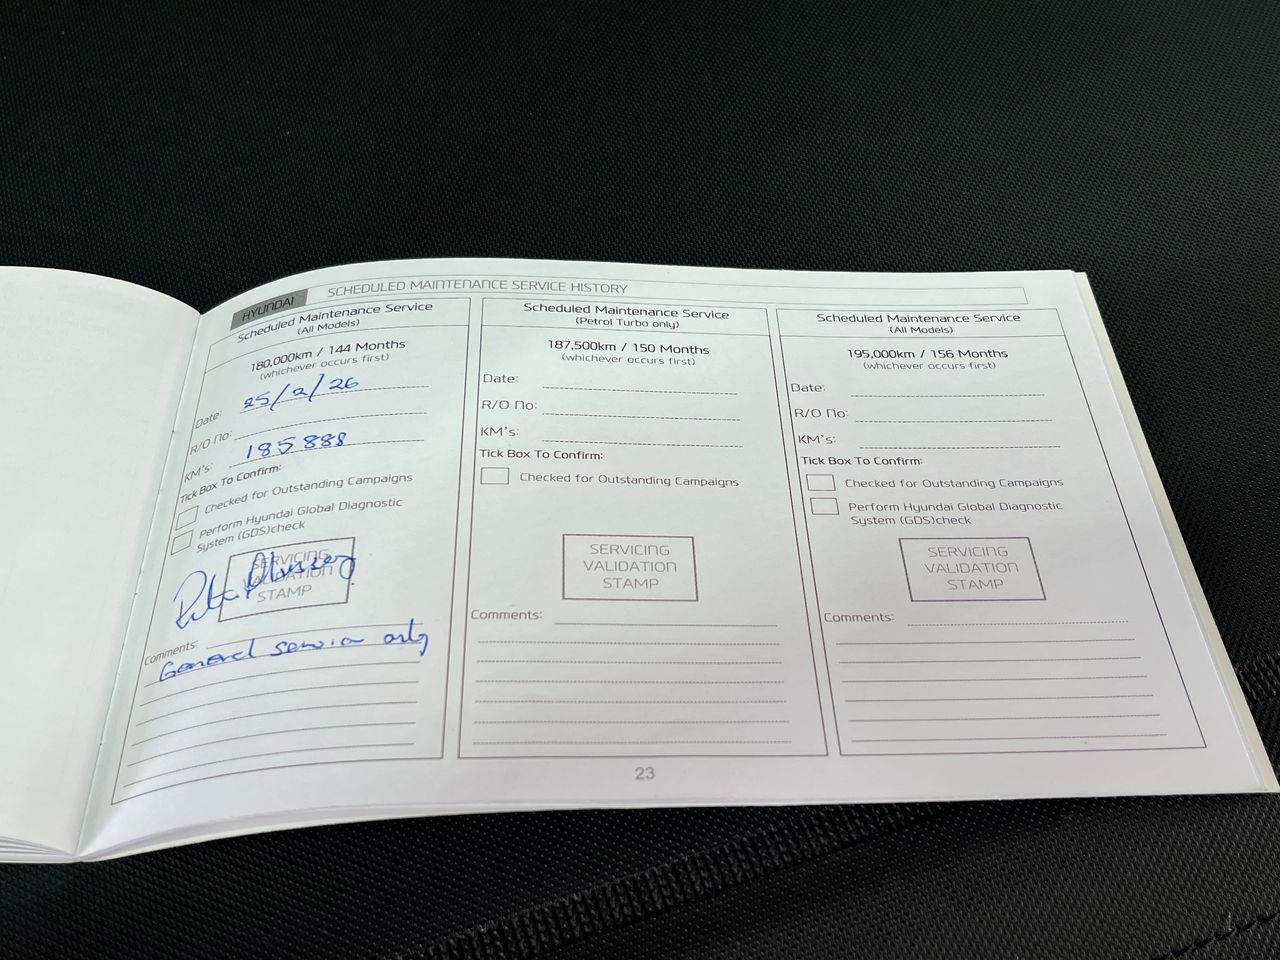 HYUNDAI SCHEDULED MAINTENANCE SERVICE HISTORY
Scheduled Maintenance Service
(All Models)
180,000km / 144 Months
(whichever occurs first)
Date: 25/2/26
R/O No:
KM's: 185888
Tick Box To Confirm:
Checked for Outstanding Campaigns
Perform Hyundai Global Diagnostic
System (GDS)check
SERVICING
VALIDATION
STAMP
Comments:
General service only
Scheduled Maintenance Service
(Petrol Turbo only)
187,500km / 150 Months
(whichever occurs first)
Date:
R/O No:
KM's:
Tick Box To Confirm:
Checked for Outstanding Campaigns
SERVICING
VALIDATION
STAMP
Comments:
Scheduled Maintenance Service
(All Models)
195,000km / 156 Months
(whichever occurs first)
Date:
R/O No:
KM's:
Tick Box To Confirm:
Checked for Outstanding Campaigns
Perform Hyundai Global Diagnostic
System (GDS)check
SERVICING
VALIDATION
STAMP
Comments:
23